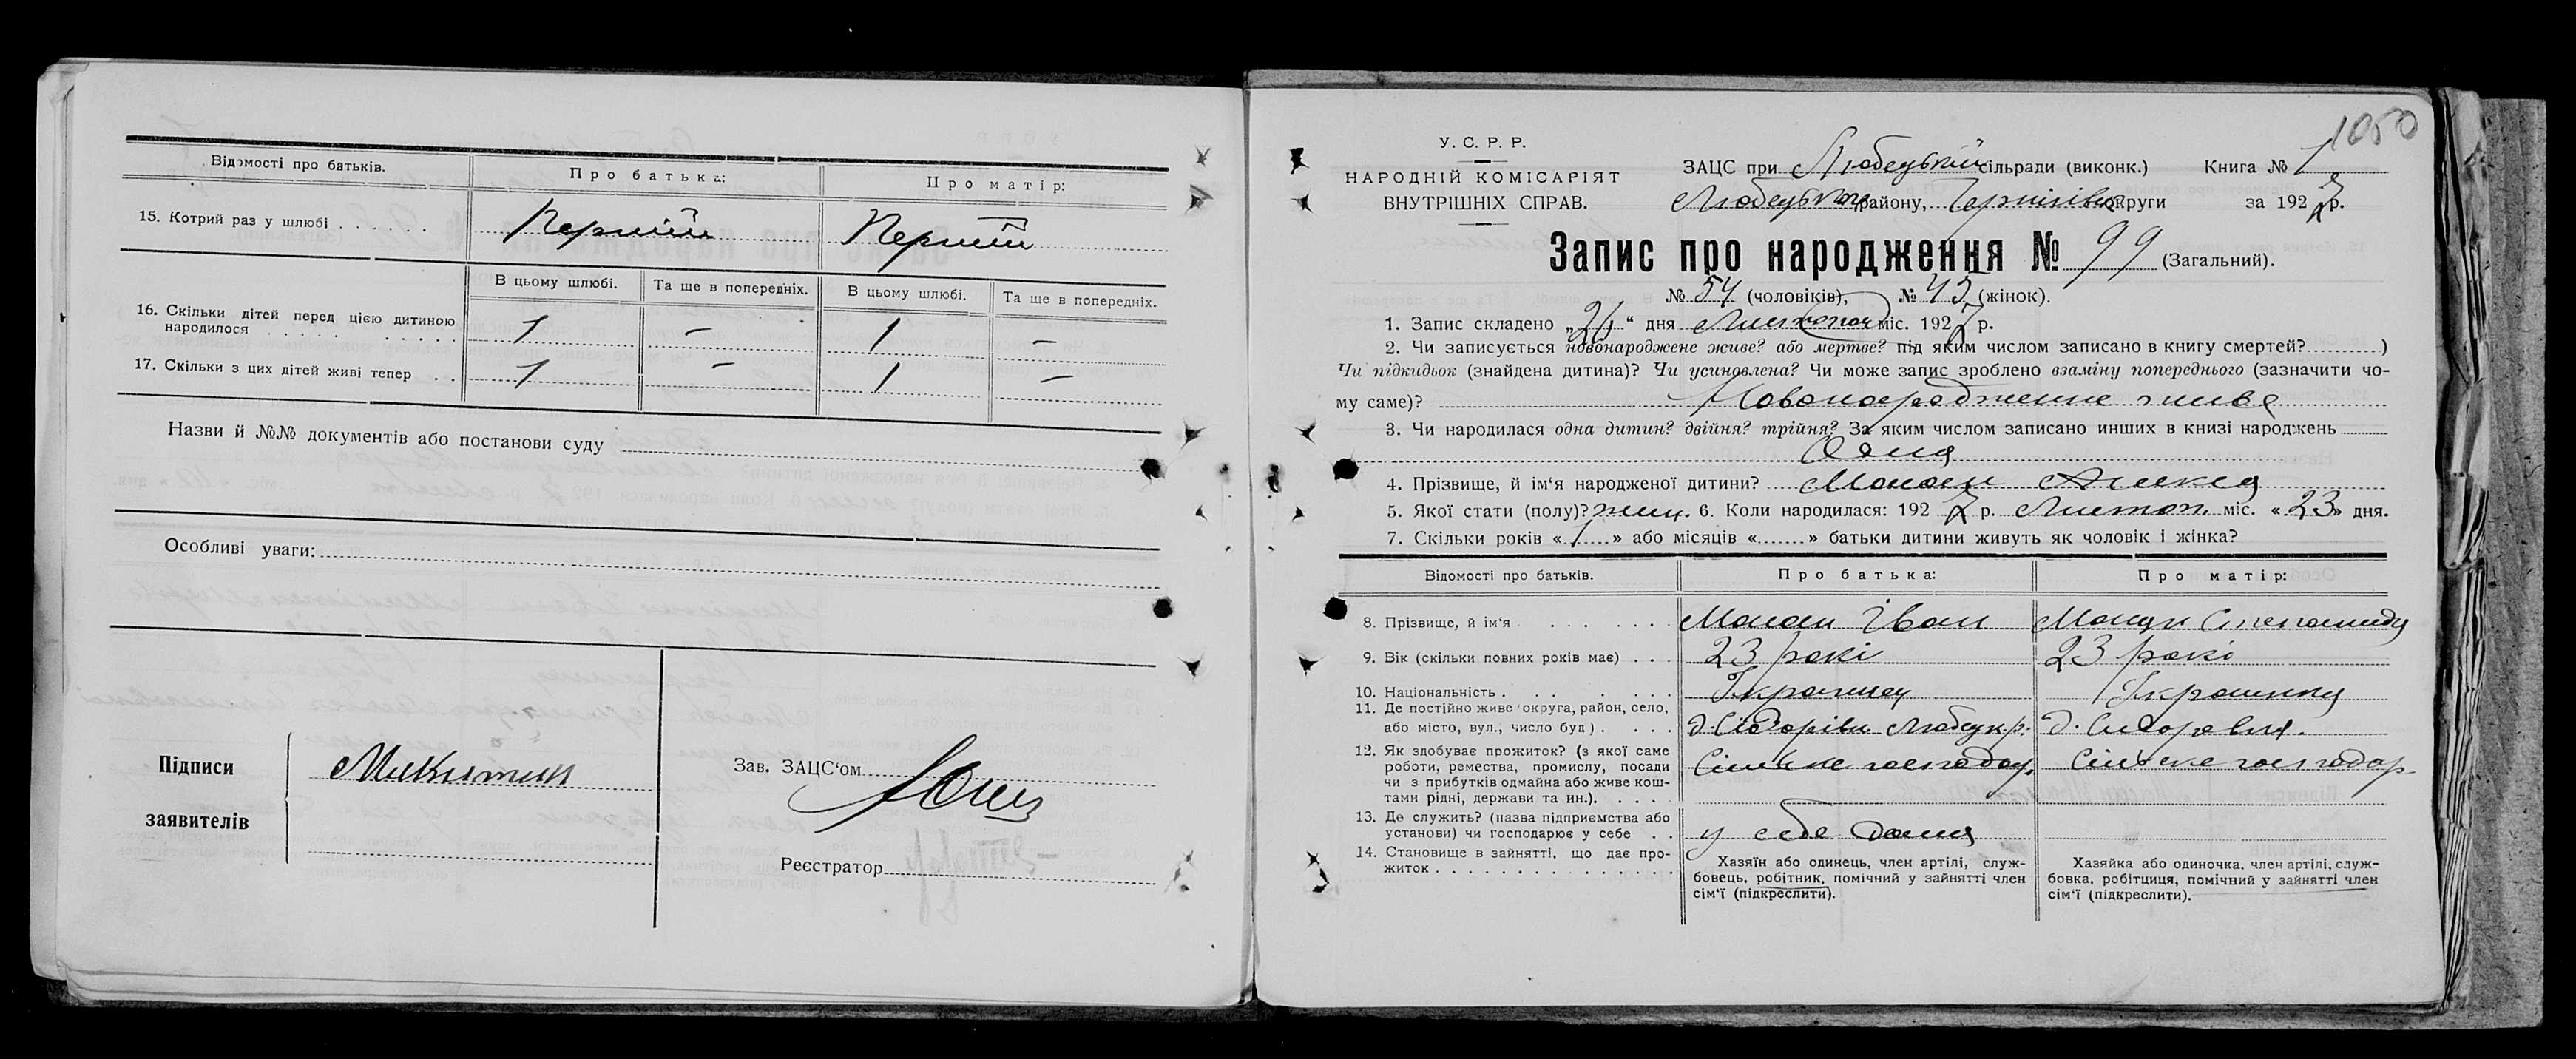 Відомості про батьків.
Про батька:
Про матір:
15. Котрий раз у шлюбі
Перший
Перший
В цьому шлюбі.
Та ще в попередніх.
В цьому шлюбі.
Та ще в попередніх.
16. Скільки дітей перед цією дитиною
народилося
1 — 1 —
17. Скільки з цих дітей живі тепер
1 — 1 —
Назви й №№ документів або постанови суду
Особливі уваги:
Підписи
заявителів
Микитин
Зав. ЗАЦС‘ом
Реєстратор
1050
У. С. Р. Р.
НАРОДНІЙ КОМІСАРІЯТ
ВНУТРІШНІХ СПРАВ.
ЗАЦС при Любецькій сільради (виконк.) Книга № 1
Любецьк району, Чернігівс округи за 1927 р.
Запис про народження № 99 (Загальний).
№ 54 (чоловіків), № 45 (жінок).
1. Запис складено „ “ дня Листопад міс. 1927 р.
2. Чи записується новонароджене живе? або мертве? під яким числом записано в книгу смертей? )
Чи підкидьок (знайдена дитина)? Чи усиновлена? Чи може запис зроблено взаміну попереднього (зазначити чо-
му саме)? Новонародженне живе
3. Чи народилася одна дитин? двійня? трійня? За яким числом записано инших в книзі народжень
Одна
4. Прізвище, й ім‘я народженої дитини?
5. Якої стати (полу)? жин. 6. Коли народилася: 1927 р. Листоп. міс. «23» дня.
7. Скільки років «1» або місяців « » батьки дитини живуть як чоловік і жінка?
Відомості про батьків.
Про батька:
Про матір:
8. Прізвище, й ім‘я
Іван
9. Вік (скільки повних років має)
23 рокі
23 рокі
10. Національність
Українец
Українка
11. Де постійно живе округа, район, село,
або місто, вул., число буд)
д. Сідорівка Любецк. р.
д. Сидоровка.
12. Як здобуває прожиток? (з якої саме
роботи, ремества, промислу, посади
чи з прибутків одмайна або живе кош-
тами рідні, держави та ин.).
Сільске господар.
Сільске господар
13. Де служить? (назва підприємства або
установи) чи господарює у себе
у себе дома
14. Становище в зайнятті, що дає про-
житок
Хазяїн або одинець, член артілі, служ-
бовець, робітник, помічний у зайнятті член
сім‘ї (підкреслити).
Хазяйка або одиночка. член артілі, служ-
бовка, робітциця, помічний у зайнятті член
сім‘ї (підкреслити).